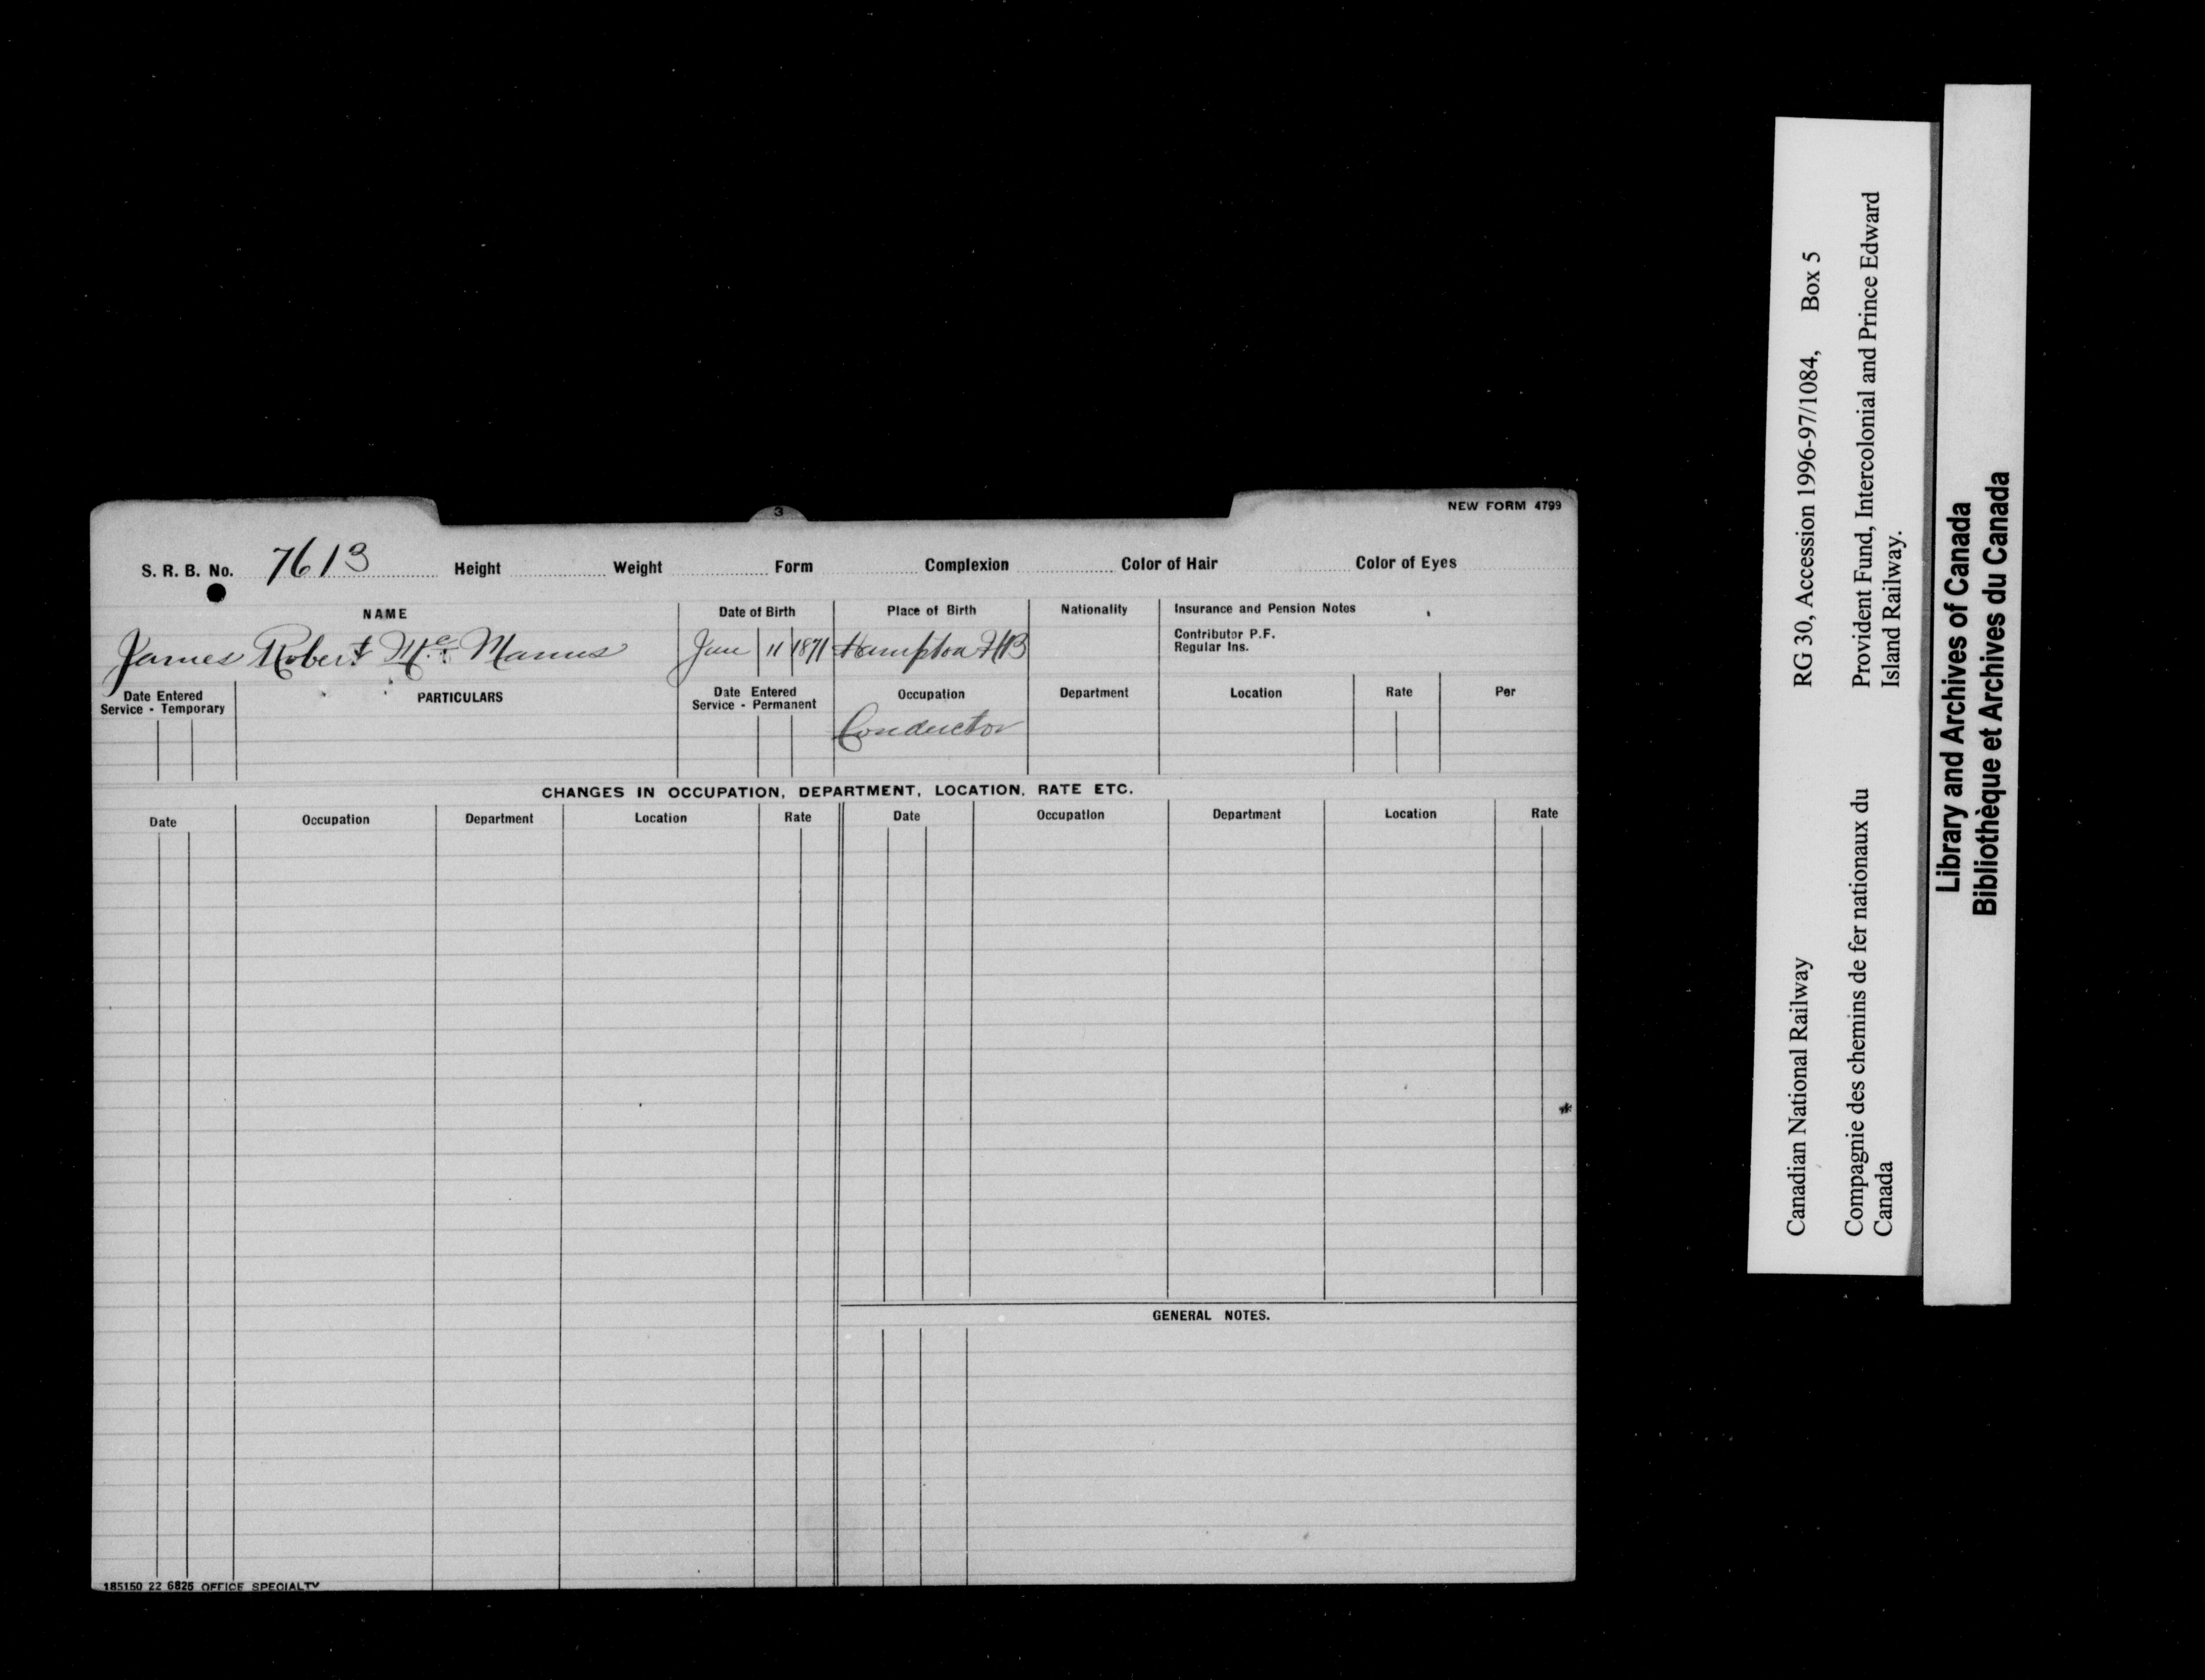 3
NEW FORM 4799
S. R. B. No. 7613 Height Weight Form Complexion Color of Hair Color of Eyes
NAME Date of Birth Place of Birth Nationality Insurance and Pension Notes
Contributor P.F.
Regular Ins.
James Robert Mc Manus June 11 1871 Hampton NB
Date Entered
Service - Temporary
PARTICULARS
Date Entered
Service - Permanent
Occupation Department Location Rate Per
Conductor
CHANGES IN OCCUPATION, DEPARTMENT, LOCATION, RATE ETC.
Date Occupation Department Location Rate Date Occupation Department Location Rate
GENERAL NOTES.
185150 22 6825 OFFICE SPECIALTY
Canadian National Railway RG 30, Accession 1996-97/1084, Box 5
Compagnie des chemins de fer nationaux du Provident Fund, Intercolonial and Prince Edward
Canada Island Railway.
Library and Archives of Canada
Bibliothèque et Archives du Canada